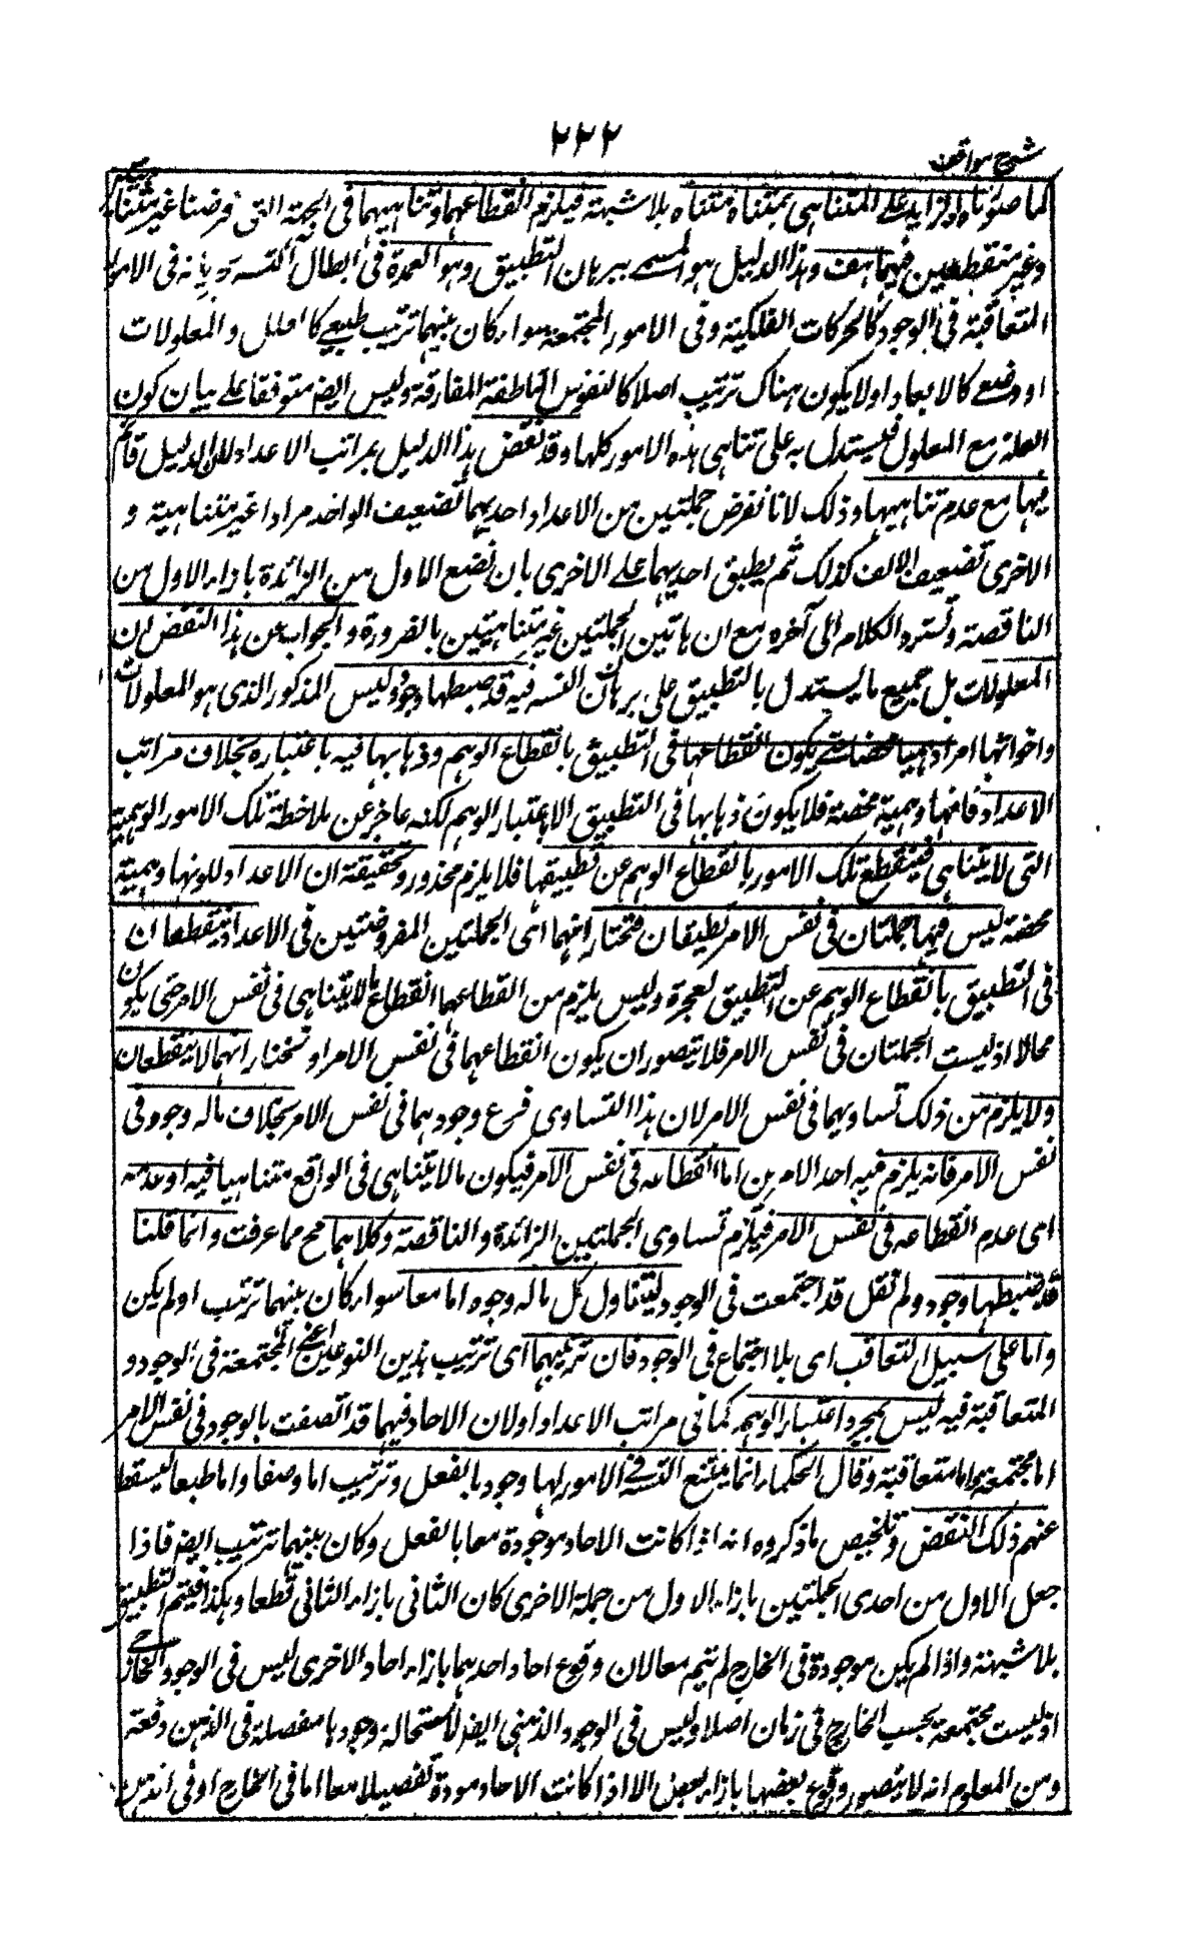 ۲۲۲
شرح مواقف
كما صورناه والزايد على المتناهى بمتناه متناه بلا شبهة فيلزم انقطاعهما وتناهيهما فى الجهة التى فرضنا غير متناهيتين
وغير منقطعين فيهما هف وهذا الدليل هو المسمے ببرهان التطبيق وهو العمدة فى ابطال التسلسل لجريانه فى الامور
المتعاقبة فى الوجود كالحركات الفلكية وفى الامور المجتمعة سواء كان بينهما ترتيب طبيعے كالعلل والمعلولات
او وضعے كالابعاد او لا يكون هناك ترتيب اصلا كالنفوس الناطقة المفارقة وليس ايضا متوقفا على بيان كون
العلة مع المعلول فيستدل به على تناهى هذه الامور كلها وقد نقض هذا الدليل بمراتب الاعداد لان الدليل قائم
فيها مع عدم تناهيها وذلك لانا نفرض جملتين من الاعداد احديهما تضعيف الواحد مرارا غير متناهية و
الاخرى تضعيف الالف كذلك ثم يطبق احديهما على الاخرى بان نضع الاول من الزائدة بازاء الاول من
الناقصة ونسرد الكلام الى آخره مع ان هاتين الجملتين غير متناهيتين بالضرورة والجواب عن هذا النقض ان
المعلولات بل جميع ما يستدل بالتطبيق على برهان التسه فيه قد ضبطها وجود وليس المذكور الذى هو المعلولات
واخواتها امرا وهميا محضا حتى يكون انقطاعها فى التطبيق بانقطاع الوهم وذهابها فيه باعتباره بخلاف مراتب
الاعداد فانها وهمية محضة فلا يكون ذهابها فى التطبيق الا باعتبار الوهم لكنه عاجز عن ملاحظة تلك الامور الوهمية
التى لا يتناهى فينقطع تلك الامور بانقطاع الوهم عن تطبيقها فلا يلزم محذور وتحقيقه ان الاعداد لكونها وهمية
محضة ليس فيها جملتان فى نفس الامر تطبيقان فنختار انهما اى الجملتين المفروضتين فى الاعداد ينقطعان
فى التطبيق بانقطاع الوهم عن التطبيق لعجزه وليس يلزم من انقطاعهما انقطاع ما لا يتناهى فى نفس الامر حتى يكون
محالا اذ ليست الجملتان فى نفس الامر فلا يتصور ان يكون انقطاعهما فى نفس الامر او نختار انهما لا ينقطعان
ولا يلزم من ذلك تساويهما فى نفس الامر لان هذا التساوى فرع وجودهما فى نفس الامر بخلاف ماله وجود فى
نفس الامر فانه يلزم فيه احد الامرين اما انقطاعه فى نفس الامر فيكون ما لا يتناهى فى الواقع متناهيا فيه او عدمه
اى عدم انقطاعه فى نفس الامر فيلزم تساوى الجملتين الزائدة والناقصة وكلاهما مح مما عرفت وانما قلنا
قد ضبطها وجود ولم نقل قد اجتمعت فى الوجود ليتناول كل ماله وجود اما معا سواء كان بينهما ترتيب او لم يكن
واما على سبيل التعاقب اى بلا اجتماع فى الوجود فان ترتبهما اى ترتيب هذين النوعين اعنى المجتمعة فى الوجود و
المتعاقبة فيه ليس بمجرد اعتبار الوهم كما فى مراتب الاعداد او لان الاحاد فيهما قد اتصفت بالوجود فى نفس الامر
اما مجتمعة واما متعاقبة وقال الحكماء انما يمتنع التسه فى الامور لها وجود بالفعل وترتيب اما وضعا واما طبعا ليسقط
عنهم ذلك النقض وتلخيص ما ذكروه انه اذا كانت الاحاد موجودة معا بالفعل وكان بينهما ترتيب ايضا فاذا
جعل الاول من احدى الجملتين بازاء الاول من جملة الاخرى كان الثانى بازاء الثانى قطعا وهكذا فيتم التطبيق
بلا شبهة واذا لم يكن موجودة فى الخارج لم يتم معا لان وقوع احاد احدهما بازاء احاد الاخرى ليس فى الوجود الخارجى
اذ ليست مجتمعة بحسب الخارج فى زمان اصلا وليس فى الوجود الذهنى ايضا لاستحالة وجودها مفصلة فى الذهن دفعة
ومن المعلوم انه لا يتصور وقوع بعضها بازاء بعض الا اذا كانت الاحاد موجودة تفصيلا معا اما فى الخارج او فى الذهن